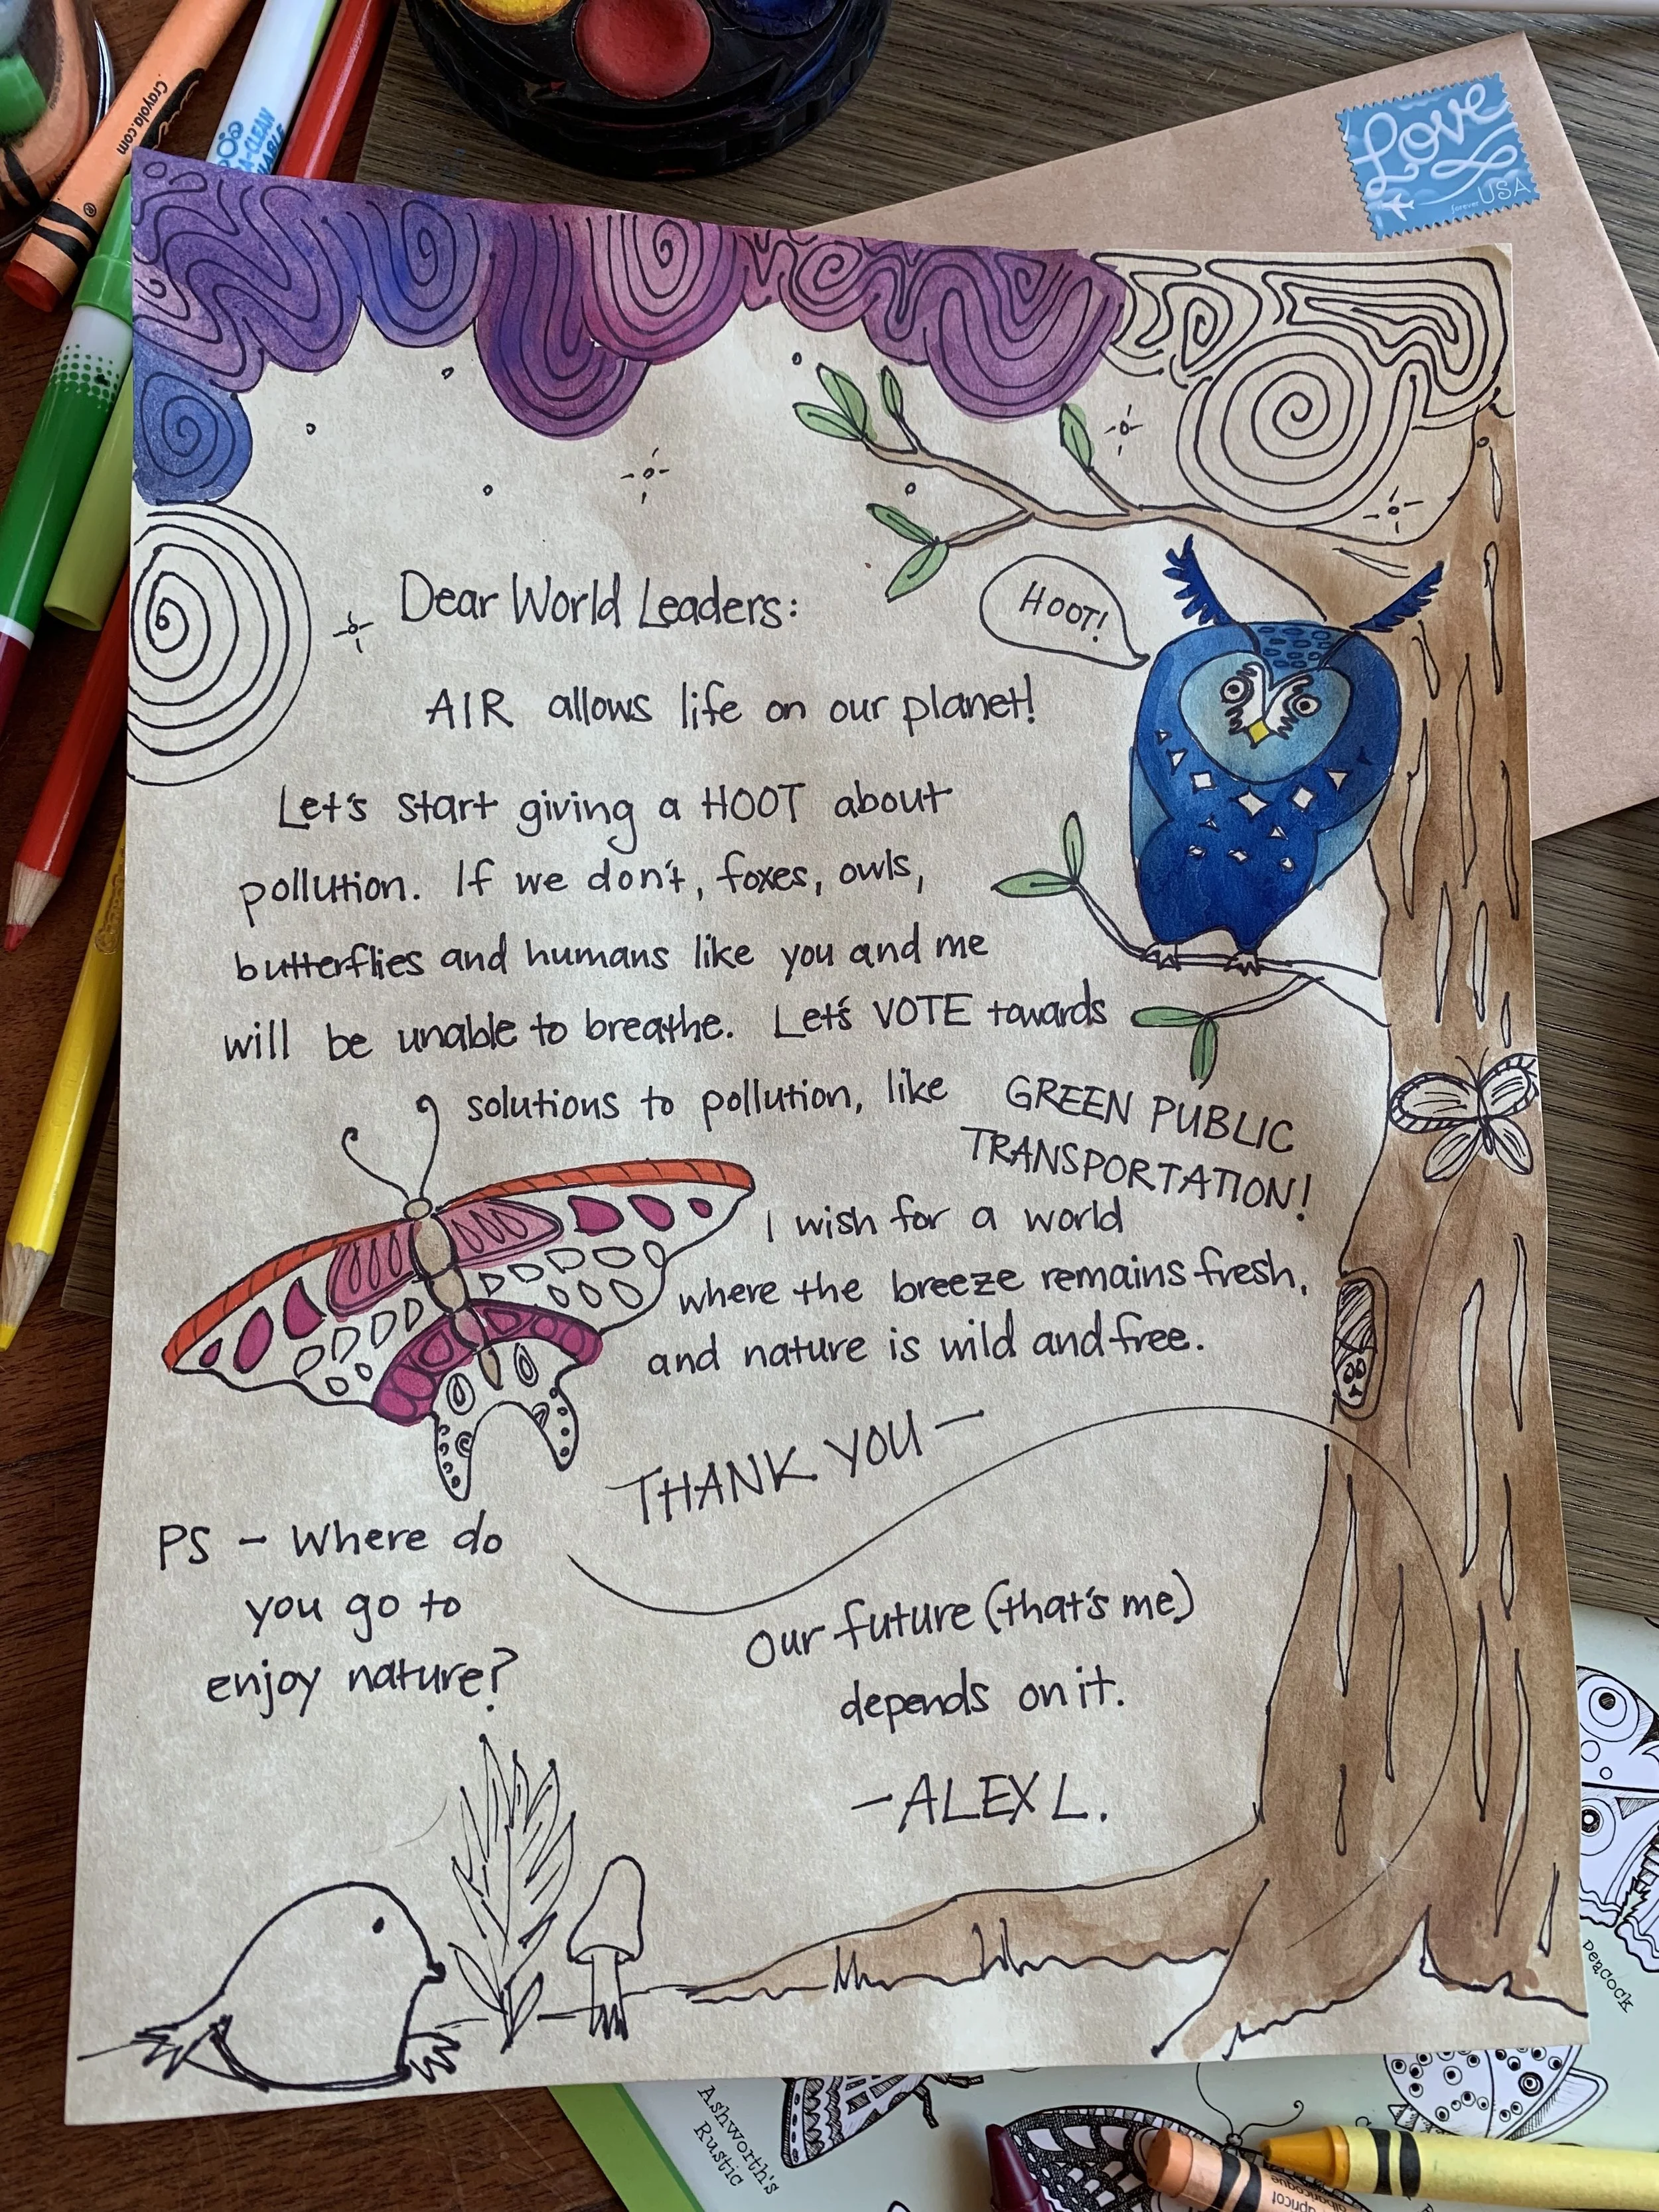 Crayola.com
A-CLEAN
Love
forever USA
Dear World Leaders:
HOOT!
AIR allows life on our planet!
Let's start giving a HOOT about
pollution. If we don't, foxes, owls,
butterflies and humans like you and me
will be unable to breathe. Let's VOTE towards
solutions to pollution, like GREEN PUBLIC
TRANSPORTATION!
I wish for a world
where the breeze remains fresh,
and nature is wild and free.
THANK YOU —
PS - Where do
you go to
enjoy nature?
Our future (that's me)
depends on it.
-ALEX L.
Peacock
Ashworth's
Rustic
apricot